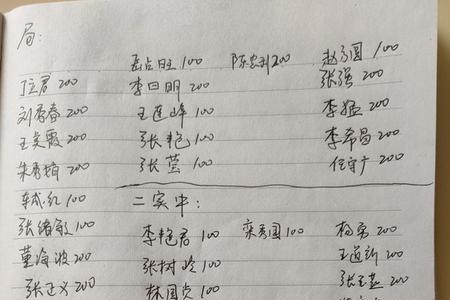 局:
岳占旺 100 陈忠利 200 赵方圆 100
丁立君 200 李日明 200 张强 200
刘春春 200 王连峰 100 李猛 200
王文霞 200 张艳 100 李希昌 200
朱秀梅 200 张莹 100 任守广 200
100
张绪敏 100 二实中:
董海波 200 李艳君 100 栾秀国 100 杨弟 200
张正义 200 张树岭 100 王道新 200
林国贞 100 张玉燕 200